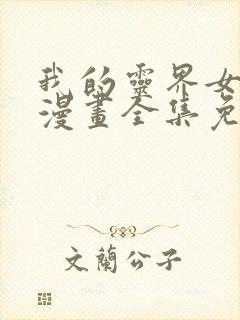 我的靈界女
漫畫全集免
文蘭公子